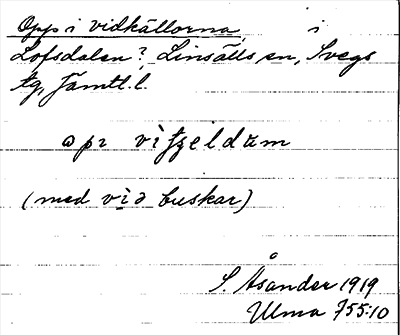 Opp i vidkällorna, i
Lofsdalen? Linsälls sn, Svegs
tg, Jämtl. l.
(med vid buskar)
S. Åsander 1919
Ulma 755:10